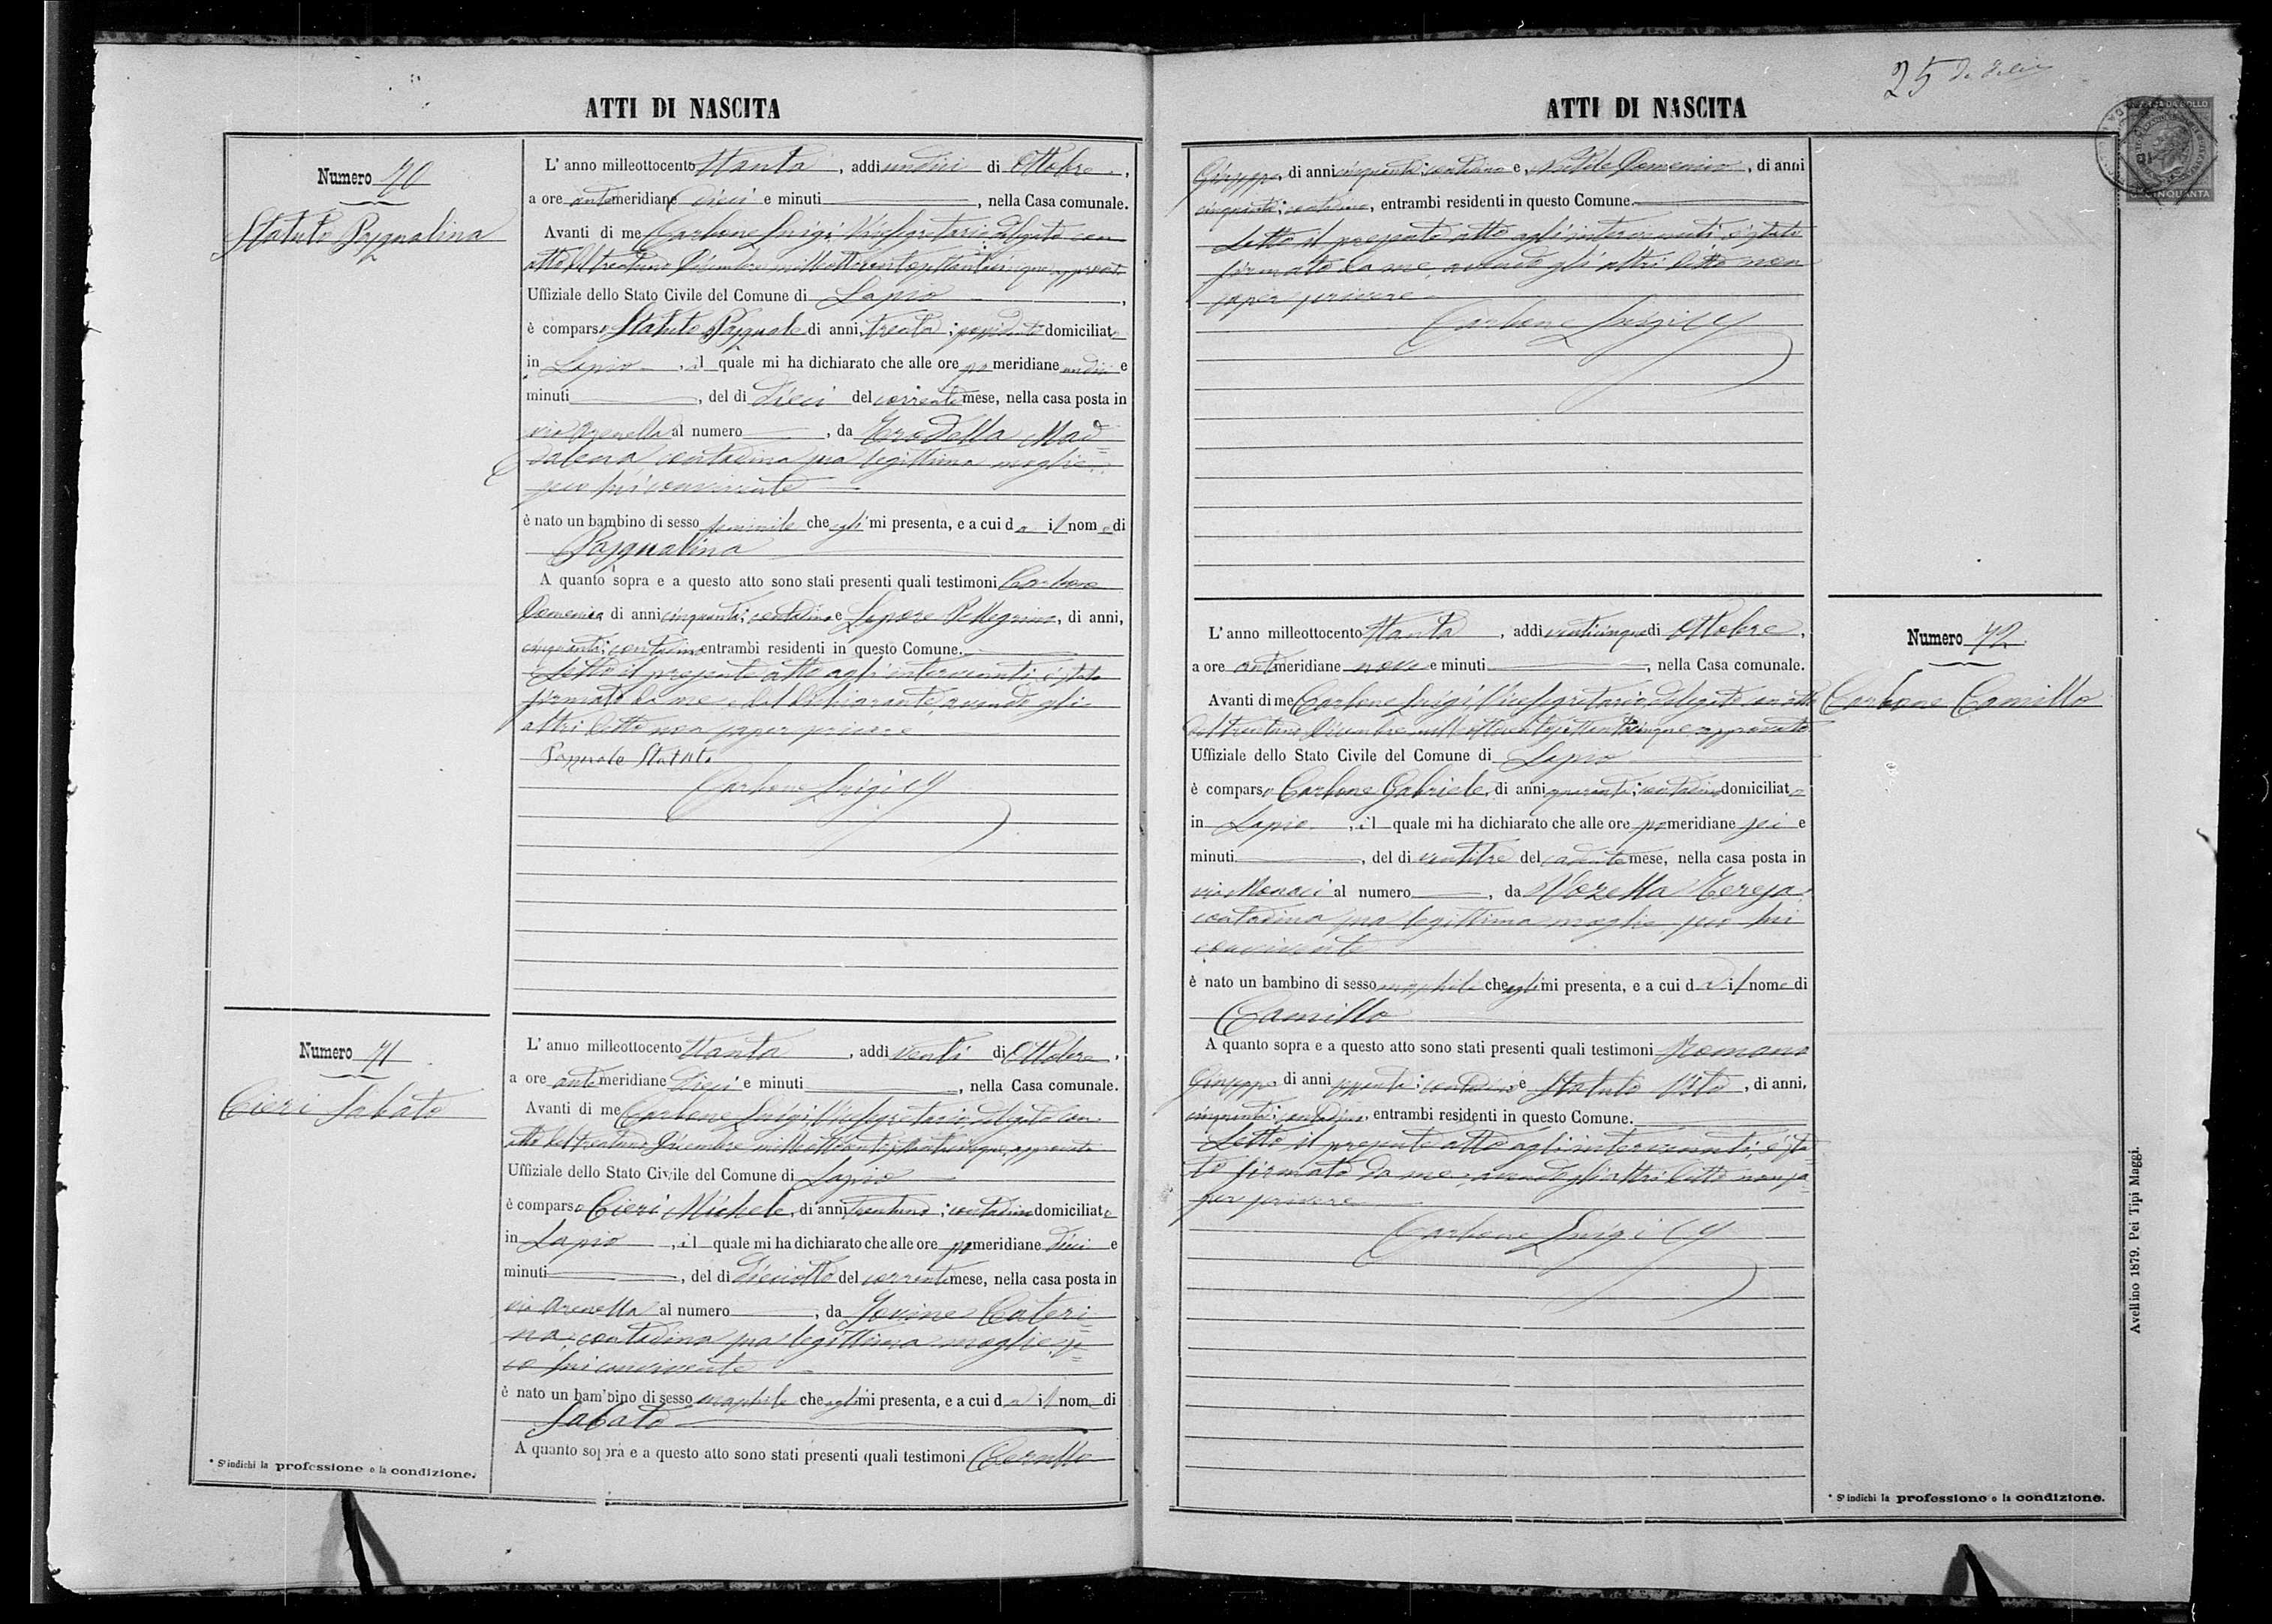 ATTI DI NASCITA
Numero 70
Statuto Pasqualina
L' anno milleottocento ottanta, addi undici di Ottobre,
a ore antimeridiane dieci e minuti, nella Casa comunale.
Avanti di me Carbone Luigi Vicesegretario delegato con
atto del trentuno Dicembre milleottocentosettantacinque, approvato
Uffiziale dello Stato Civile del Comune di Lapio,
è comparso Statuto Pasquale di anni trenta; domiciliato
in Lapio, il quale mi ha dichiarato che alle ore pomeridiane undici e
minuti, del di dieci del corrente mese, nella casa posta in
via Arenella al numero, da Trodella Mad=
dalena contadina sua legittima moglie,
seco lui convivente
è nato un bambino di sesso feminile che egli mi presenta, e a cui dà il nome di
Pasqualina
A quanto sopra e a questo atto sono stati presenti quali testimoni Carbone
Domenico di anni cinquanta; contadino e Lepore Pellegrino, di anni,
cinquanta; contadino entrambi residenti in questo Comune.
Letto il presente atto agli intervenuti, è stato
firmato da me e dal dichiarante avendo gli
altri detto non saper scrivere
Pasquale Statuto
Carbone Luigi
Numero 71
Cieri Sabato
L' anno milleottocento ottanta, addi venti di Ottobre,
a ore antimeridiane dieci e minuti, nella Casa comunale.
Avanti di me Carbone Luigi, Vicesegretario, delegato con
atto del trentuno Dicembre milleottocentosettantacinque, approvato
Uffiziale dello Stato Civile del Comune di Lapio
è comparso Cieri Michele, di anni trentuno; contadino domiciliato
in Lapio, il quale mi ha dichiarato che alle ore pomeridiane dieci e
minuti, del di dieciotto del corrente mese, nella casa posta in
via Arenella al numero, da Iovine Cateri=
na, contadina sua legittima moglie, se=
co lui convivente
è nato un bambino di sesso maschile che egli mi presenta, e a cui dà il nome di
Sabato
A quanto sopra e a questo atto sono stati presenti quali testimoni
* S'indichi la professione o la condizione.
25
ATTI DI NASCITA
Giuseppe, di anni cinquanta; contadino e, Domenico, di anni
cinquanta; contadino, entrambi residenti in questo Comune.
Letto il presente atto agli intervenuti, è stato
firmato da me, avendo gli altri detto non
saper scrivere
Carbone Luigi
L' anno milleottocento ottanta, addi venticinque di Ottobre,
a ore antimeridiane nove e minuti, nella Casa comunale.
Avanti di me Carbone Luigi Vicesegretario delegato con atto
del trentuno Dicembre milleottocentosettantacinque approvato
Uffiziale dello Stato Civile del Comune di Lapio
è comparso Carbone Gabriele, di anni quaranta; contadino domiciliato
in Lapio, il quale mi ha dichiarato che alle ore pomeridiane sei e
minuti, del di ventitre del cadente mese, nella casa posta in
via Monaci al numero, da Vozella Teresa
contadina sua legittima moglie, seco lui
convivente
è nato un bambino di sesso maschile che egli mi presenta, e a cui dà il nome di
Camillo
A quanto sopra e a questo atto sono stati presenti quali testimoni Romano
Giuseppe, di anni sessanta; contadino e Statuto Vito, di anni,
cinquanta; contadino, entrambi residenti in questo Comune.
Letto il presente atto agli intervenuti, è sta=
to firmato da me, avendo gli altri detto non sa=
per scrivere
Carbone Luigi
Numero 72
Carbone Camillo
* S'indichi la professione o la condizione.
Avellino 1879. Pei Tipi Maggi.